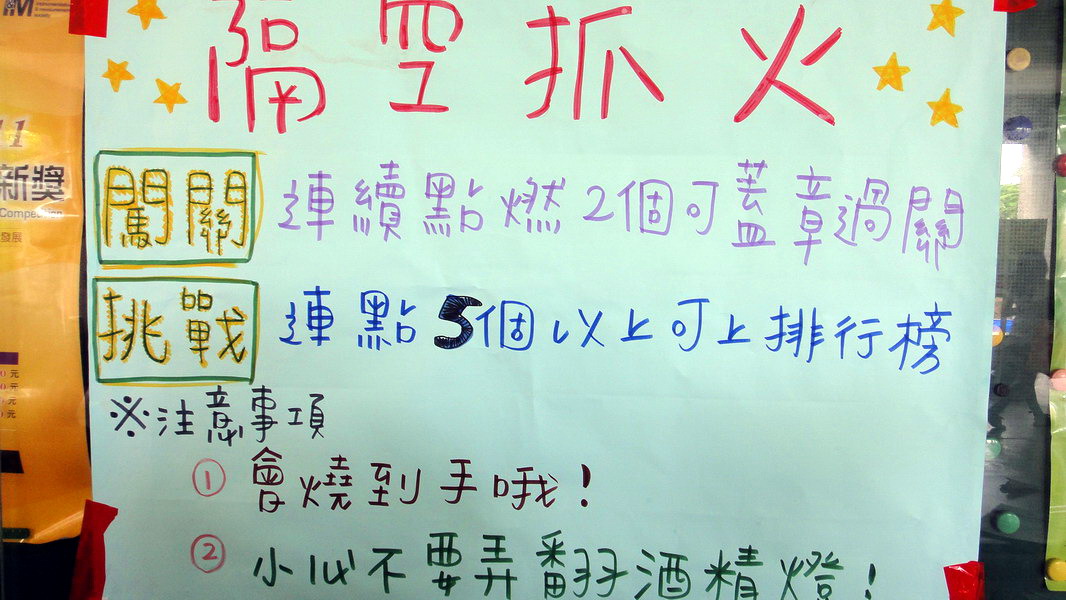 隔空抓火
闖關 連續點燃2個可蓋章過關
挑戰 連點5個以上可上排行榜
※注意事項
① 會燒到手哦!
② 小心不要弄翻酒精燈!
11
新獎
Competition
發展
元
元
元
元